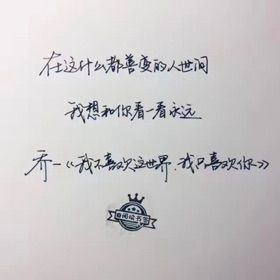 在这什么都善变的人世间
我想和你看一看永远
乔一《我不喜欢这世界,我只喜欢你》